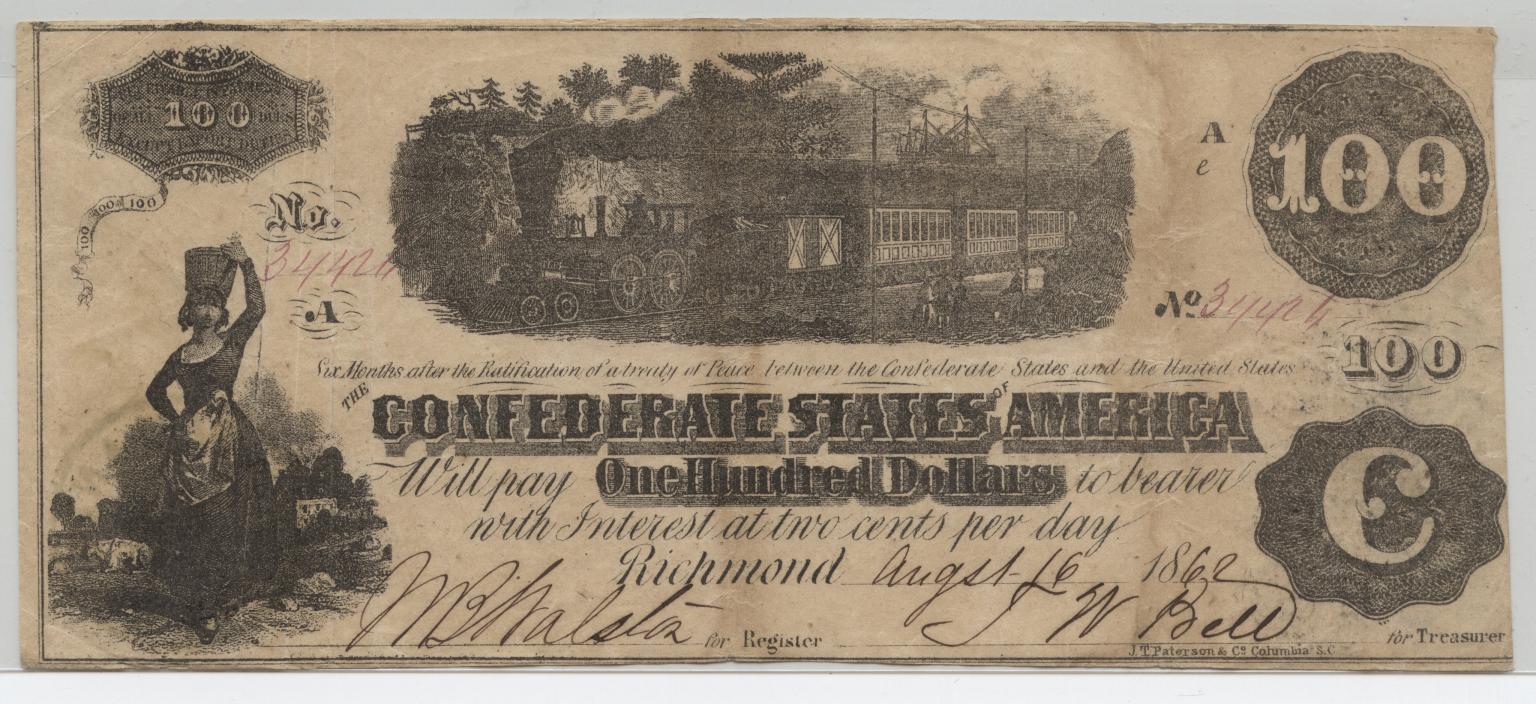 100
100 100 100
No.
A
A
e
100
No
100
Six Months after the Ratification of a treaty of Peace between the Confederate States and the United States
THE CONFEDERATE STATES OF AMERICA
Will pay One Hundred Dollars to bearer
with Interest at two cents per day
C
Richmond Augst 16 1862
for Register
J W Bell for Treasurer
J.T. Paterson & Co Columbia S.C